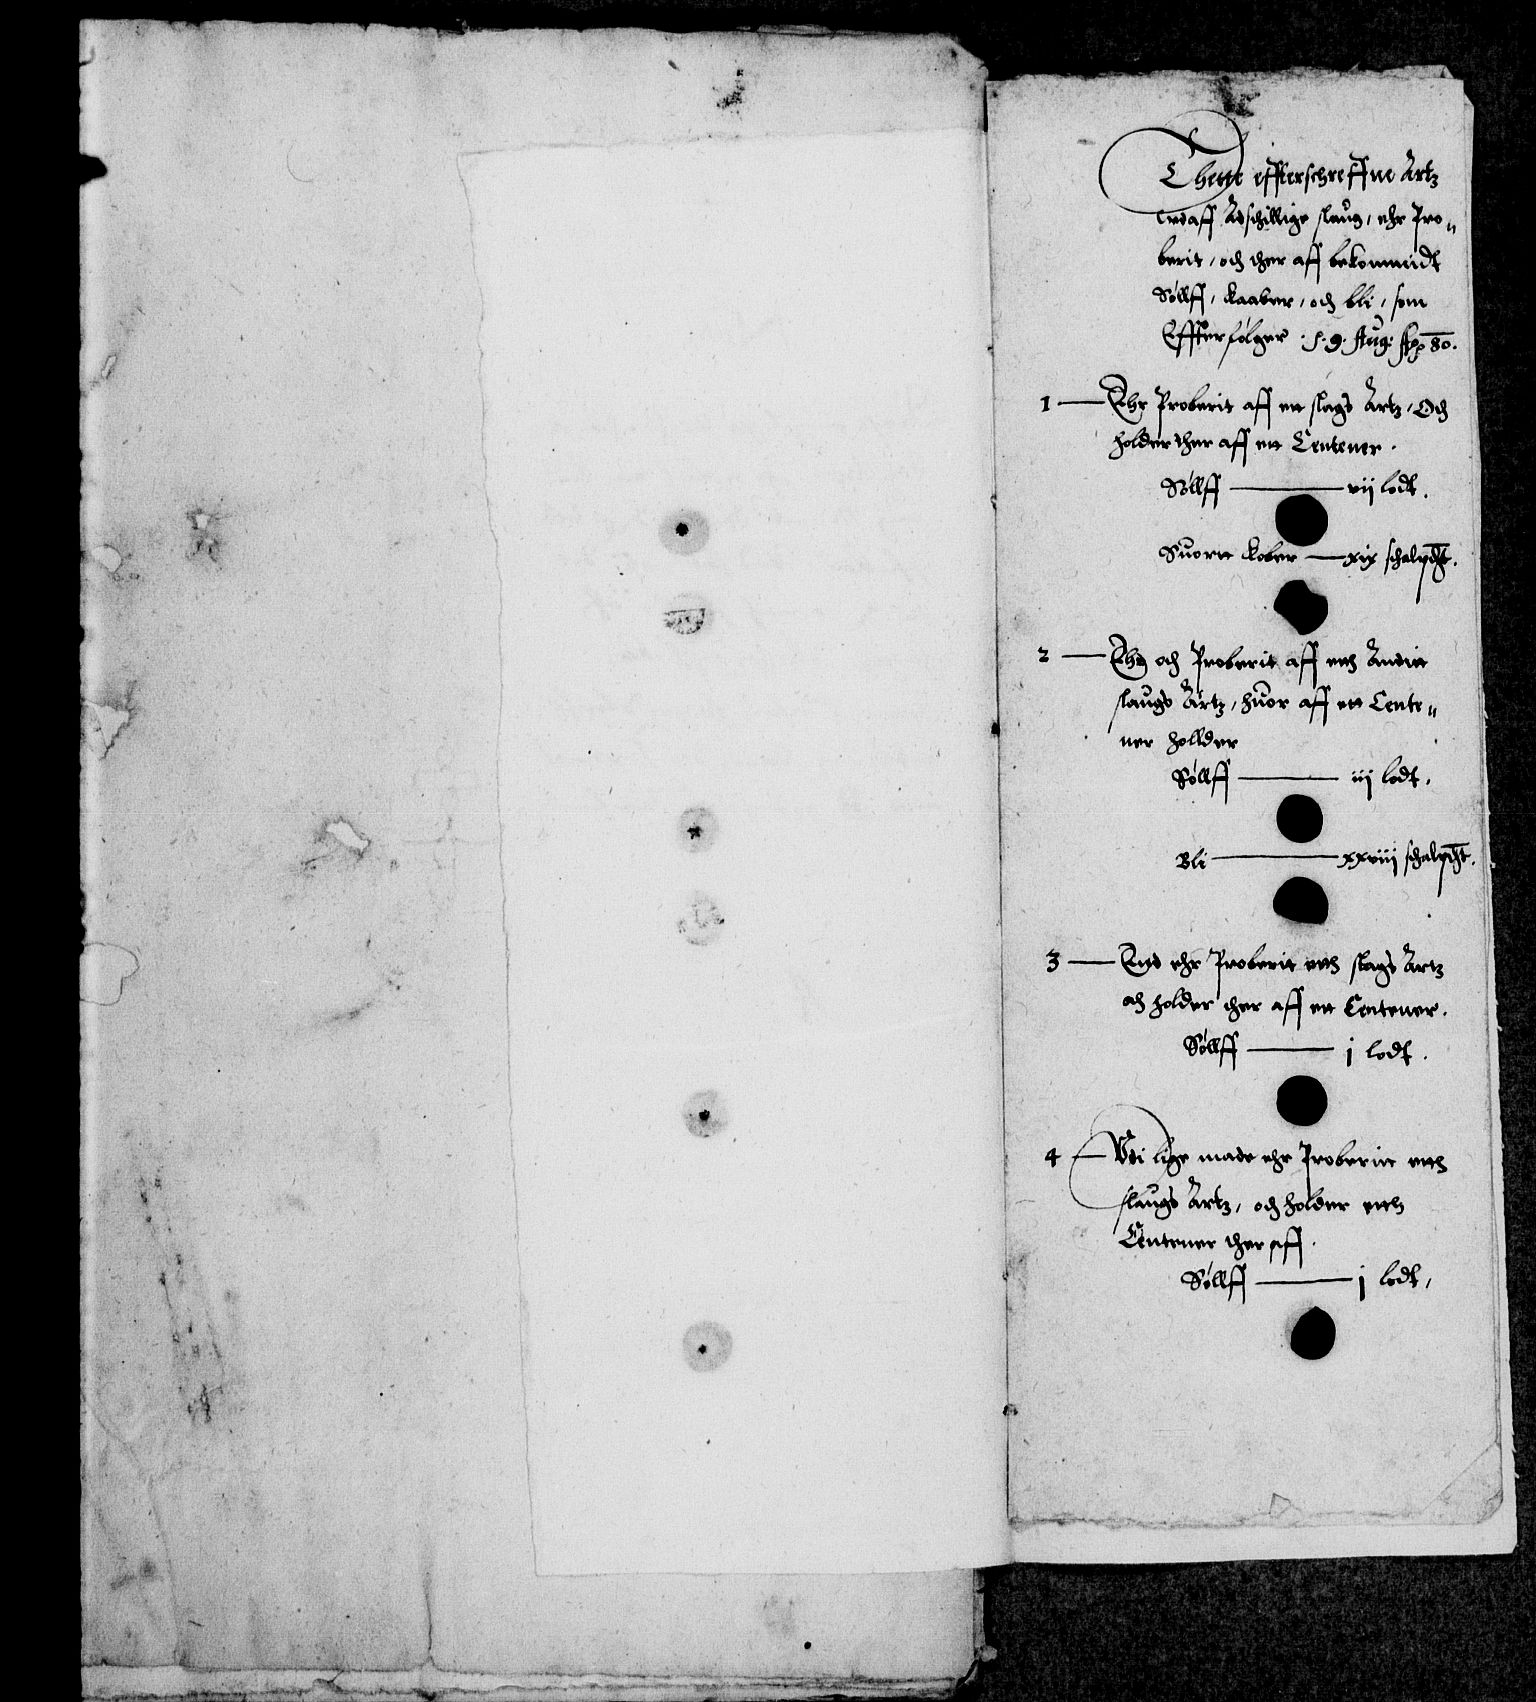 Thette effterschreffne Ärtz
Adschillige slaug, ehr Pro„
berit, och ther aff bekommidt
Söllff, kaaber, och bli, som
Effterfölger 9. Aug:
1 — Ehr Proberit aff ett slags Ärtz, Och
holder ther aff ett Centener.
Söllff — vij lodt.
Suortt kober — xix schalpdt.
2 — Ehr och Proberit aff etth Anditt
slaugs Ärtz, huor aff ett Cente„
ner hollder
Söllff — iij lodt.
Bli — xxviij schalpdt.
3 — End ehr Proberit etth slags Ärtz
och holder ther aff ett Centener.
Söllff — j lodt.
4 — Vdi lige made ehr Proberitt etth
slaugs Ärtz, och holder etth
Centener ther aff.
Söllff — j lodt,